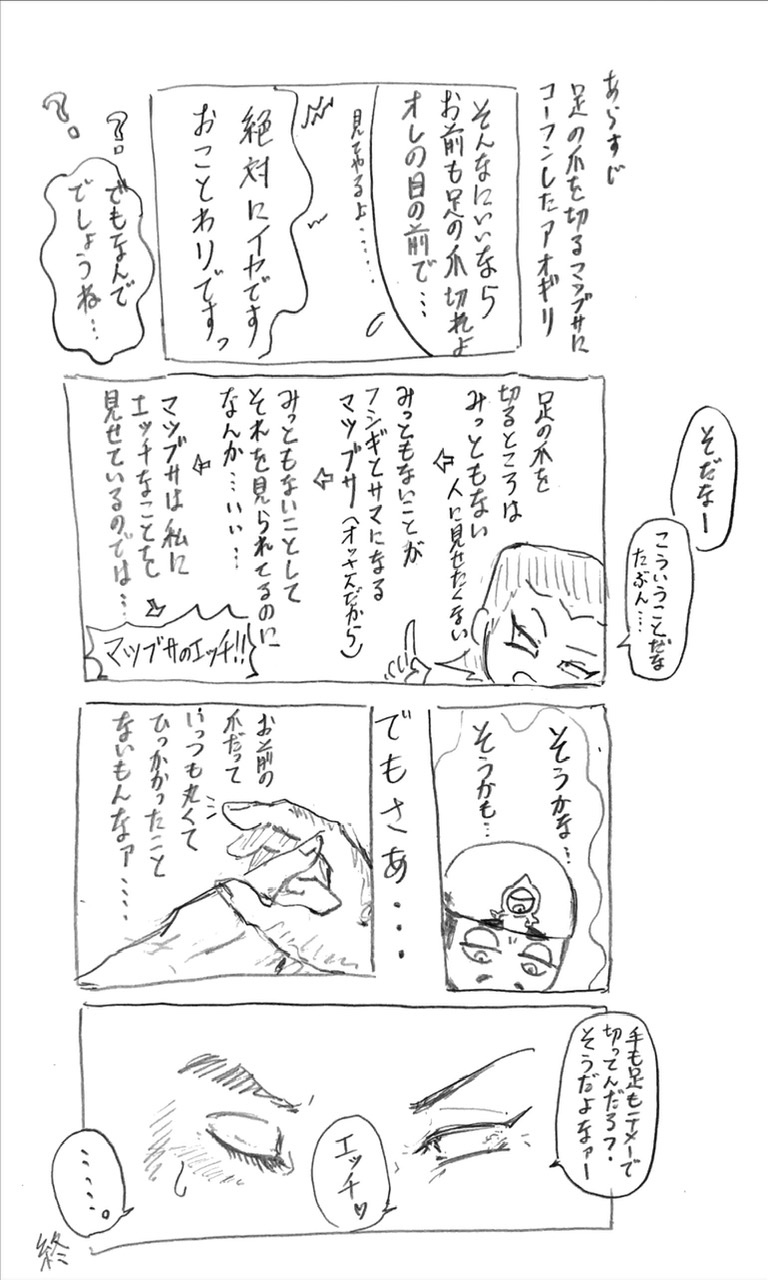 あらすじ
足の爪を切るマツブサに
コーフンしたアオギリ
そんなにいいなら
お前も足の爪切れよ
オレの目の前で…
見てやるよ……
絶対にイヤです
おことわりですっ
?。
?。
でもなんで
でしょうね…
そだなー
こういうことだな
たぶん…
足の爪を
切るところは
みっともない
人に見せたくない
⇦
みっともないことが
フシギとサマになる
マツブサ(オッサンだから)
⇦
みっともないことして
それを見られてるのに
なんか…いい…
⇦
マツブサは私に
エッチなことを
見せているのでは…
⇨
マツブサのエッチ!!
そうかな…
そうかも…
でもさあ…
お前の
爪だって
いっつも丸くて
ひっかかったこと
ないもんなァ……
手も足もテメーで
切ってんだろ?
そうだよなァー
エッチ♡
……。
終